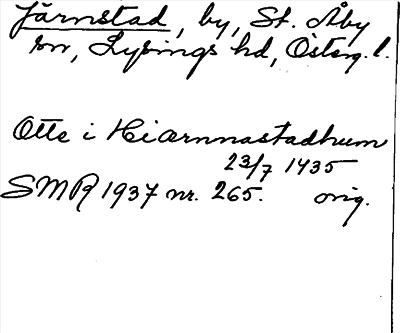 Järnstad, by, St. Åby
sn, Lysings hd, Österg. l.
Otte i Hiærnnastadhum
23/7 1435
SMR 1937 nr. 265. orig.